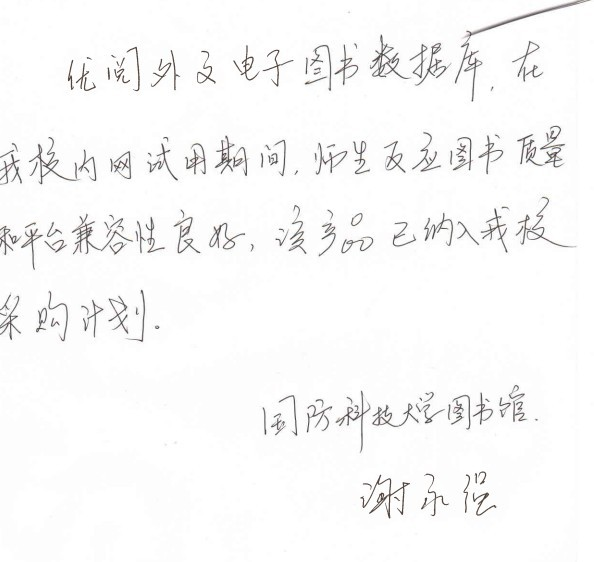 优阅外文电子图书数据库,在
我校内网试用期间,师生反应图书质量
和平台兼容性良好,该产品已纳入我校
采购计划。
国防科技大学图书馆.
谢永强